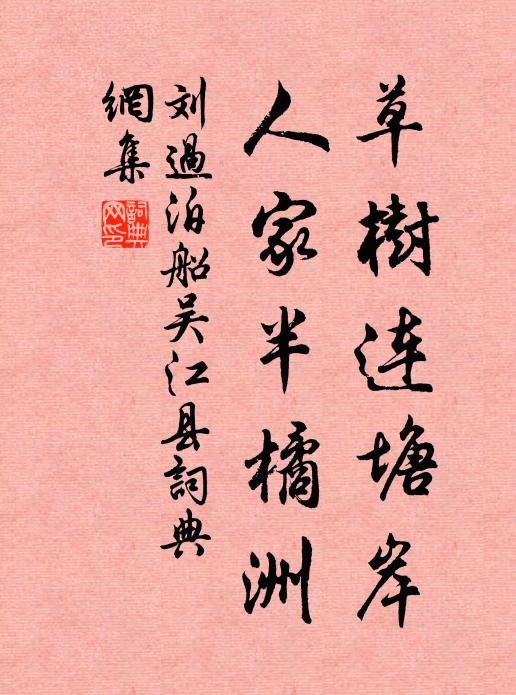 草樹連塘岸
人家半橘洲
刘過泊船吴江县詞典
網集
詞典網印